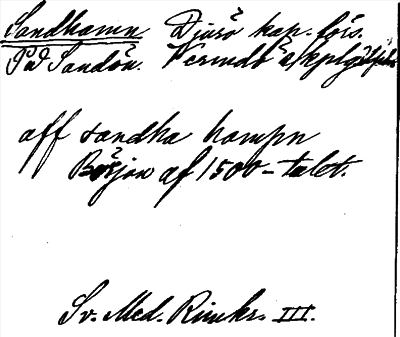 Sandhamn Djurö kap. förs.
På Sandön. Vermdö
aff sandha hampn
Början af 1500-talet.
Sv. Med. Rimkr. III.